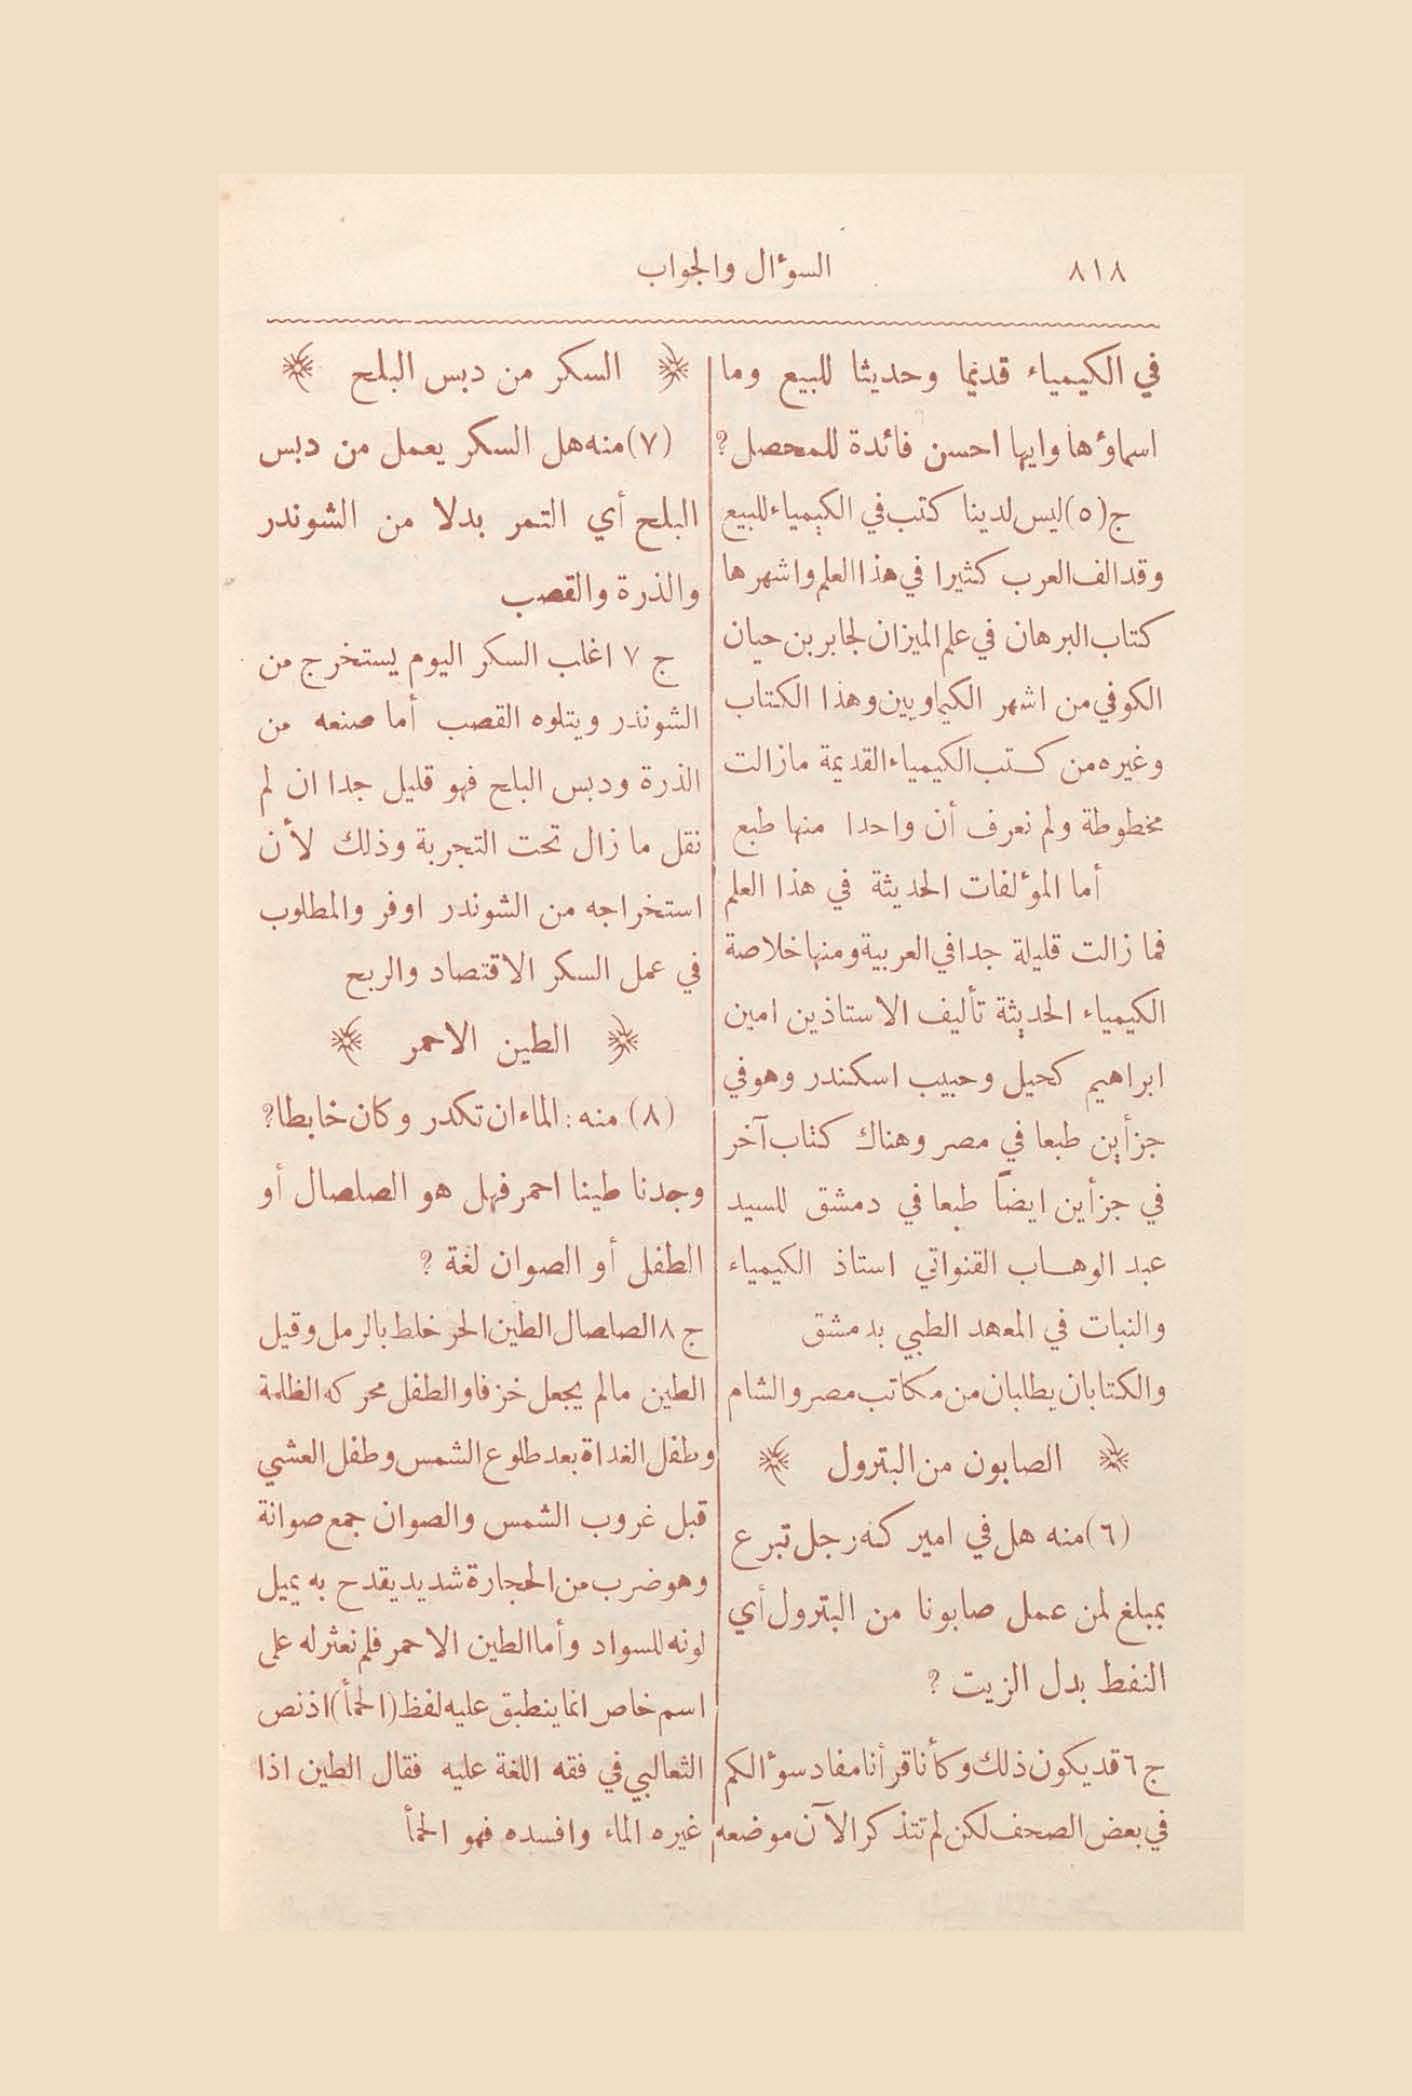 ٨١٨
السوءال والجواب
في الكيمياء قديما وحديثا للبيع وما
اسماوءها وايها احسن فائدة للمحصل ؟
ج (٥) ليس لدينا كتب في الكيمياء للبيع
وقد الف العرب كثيرا في هذا العلم واشهرها
كتاب البرهان في علم الميزان لجابر بن حيان
الكوفي من اشهر الكيماويين وهذا الكتاب
وغيره من كتب الكيمياء القديمة مازالت
مخطوطة ولم نعرف أن واحدا منها طبع
أما الموءلفات الحديثة في هذا العلم
فما زالت قليلة جدا في العربية ومنها خلاصة
الكيمياء الحديثة تأليف الاستاذين امين
ابراهيم كحيل وحبيب اسكندر وهو في
جزأين طبعا في مصر وهناك كتاب آخر
في جزأين ايضاً طبعا في دمشق للسيد
عبد الوهاب القنواتي استاذ الكيمياء
والنبات في المعهد الطبي بدمشق
والكتابان يطلبان من مكاتب مصر والشام
الصابون من البترول
(٦) منه هل في اميركه رجل تبرع
بمبلغ لمن عمل صابونا من البترول أي
النفط بدل الزيت ؟
ج ٦ قد يكون ذلك وكأنا قرأنا مفاد سوءالكم
في بعض الصحف لكن لم نتذكر الآن موضعه
السكر من دبس البلح
(٧) منه هل السكر يعمل من دبس
البلح أي التمر بدلا من الشوندر
والذرة والقصب
ج ٧ اغلب السكر اليوم يستخرج من
الشوندر ويتلوه القصب أما صنعه من
الذرة ودبس البلح فهو قليل جدا ان لم
نقل ما زال تحت التجربة وذلك لأن
استخراجه من الشوندر اوفر والمطلوب
في عمل السكر الاقتصاد والربح
الطين الاحمر
(٨) منه : الماء ان تكدر وكان خابطا ؟
وجدنا طينا احمر فهل هو الصلصال أو
الطفل أو الصوان لغة ؟
ج ٨ الصلصال الطين الحر خلط بالرمل وقيل
الطين مالم يجعل خزفا والطفل محركه الظلمة
وطفل الغداة بعد طلوع الشمس وطفل العشي
قبل غروب الشمس والصوان جمع صوانة
وهو ضرب من الحجارة شديد يقدح به يميل
لونه للسواد وأما الطين الاحمر فلم نعثر له على
اسم خاص انما ينطبق عليه لفظ (الحمأ) اذ نص
الثعالبي في فقه اللغة عليه فقال الطين اذا
غيره الماء وافسده فهو الحمأ